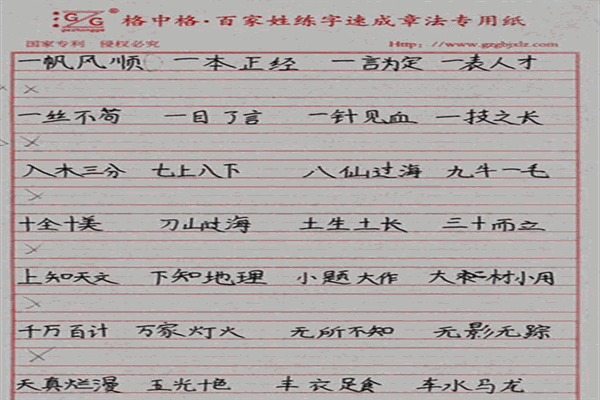 GZG gezhongge ® 格中格·百家姓练字速成章法专用纸
国家专利 侵权必究 Http://www.gzgbjxlz.com
一帆风顺 一本正经 一言为定 一表人才
一丝不苟 一目了言 一针见血 一技之长
入木三分 七上八下 八仙过海 九牛一毛
十全十美 刀山过海 土生土长 三十而立
上知天文 下知地理 小题大作 大材小用
千万百计 万家灯火 无所不知 无影无踪
天真烂漫 五光十色 丰衣足食 车水马龙